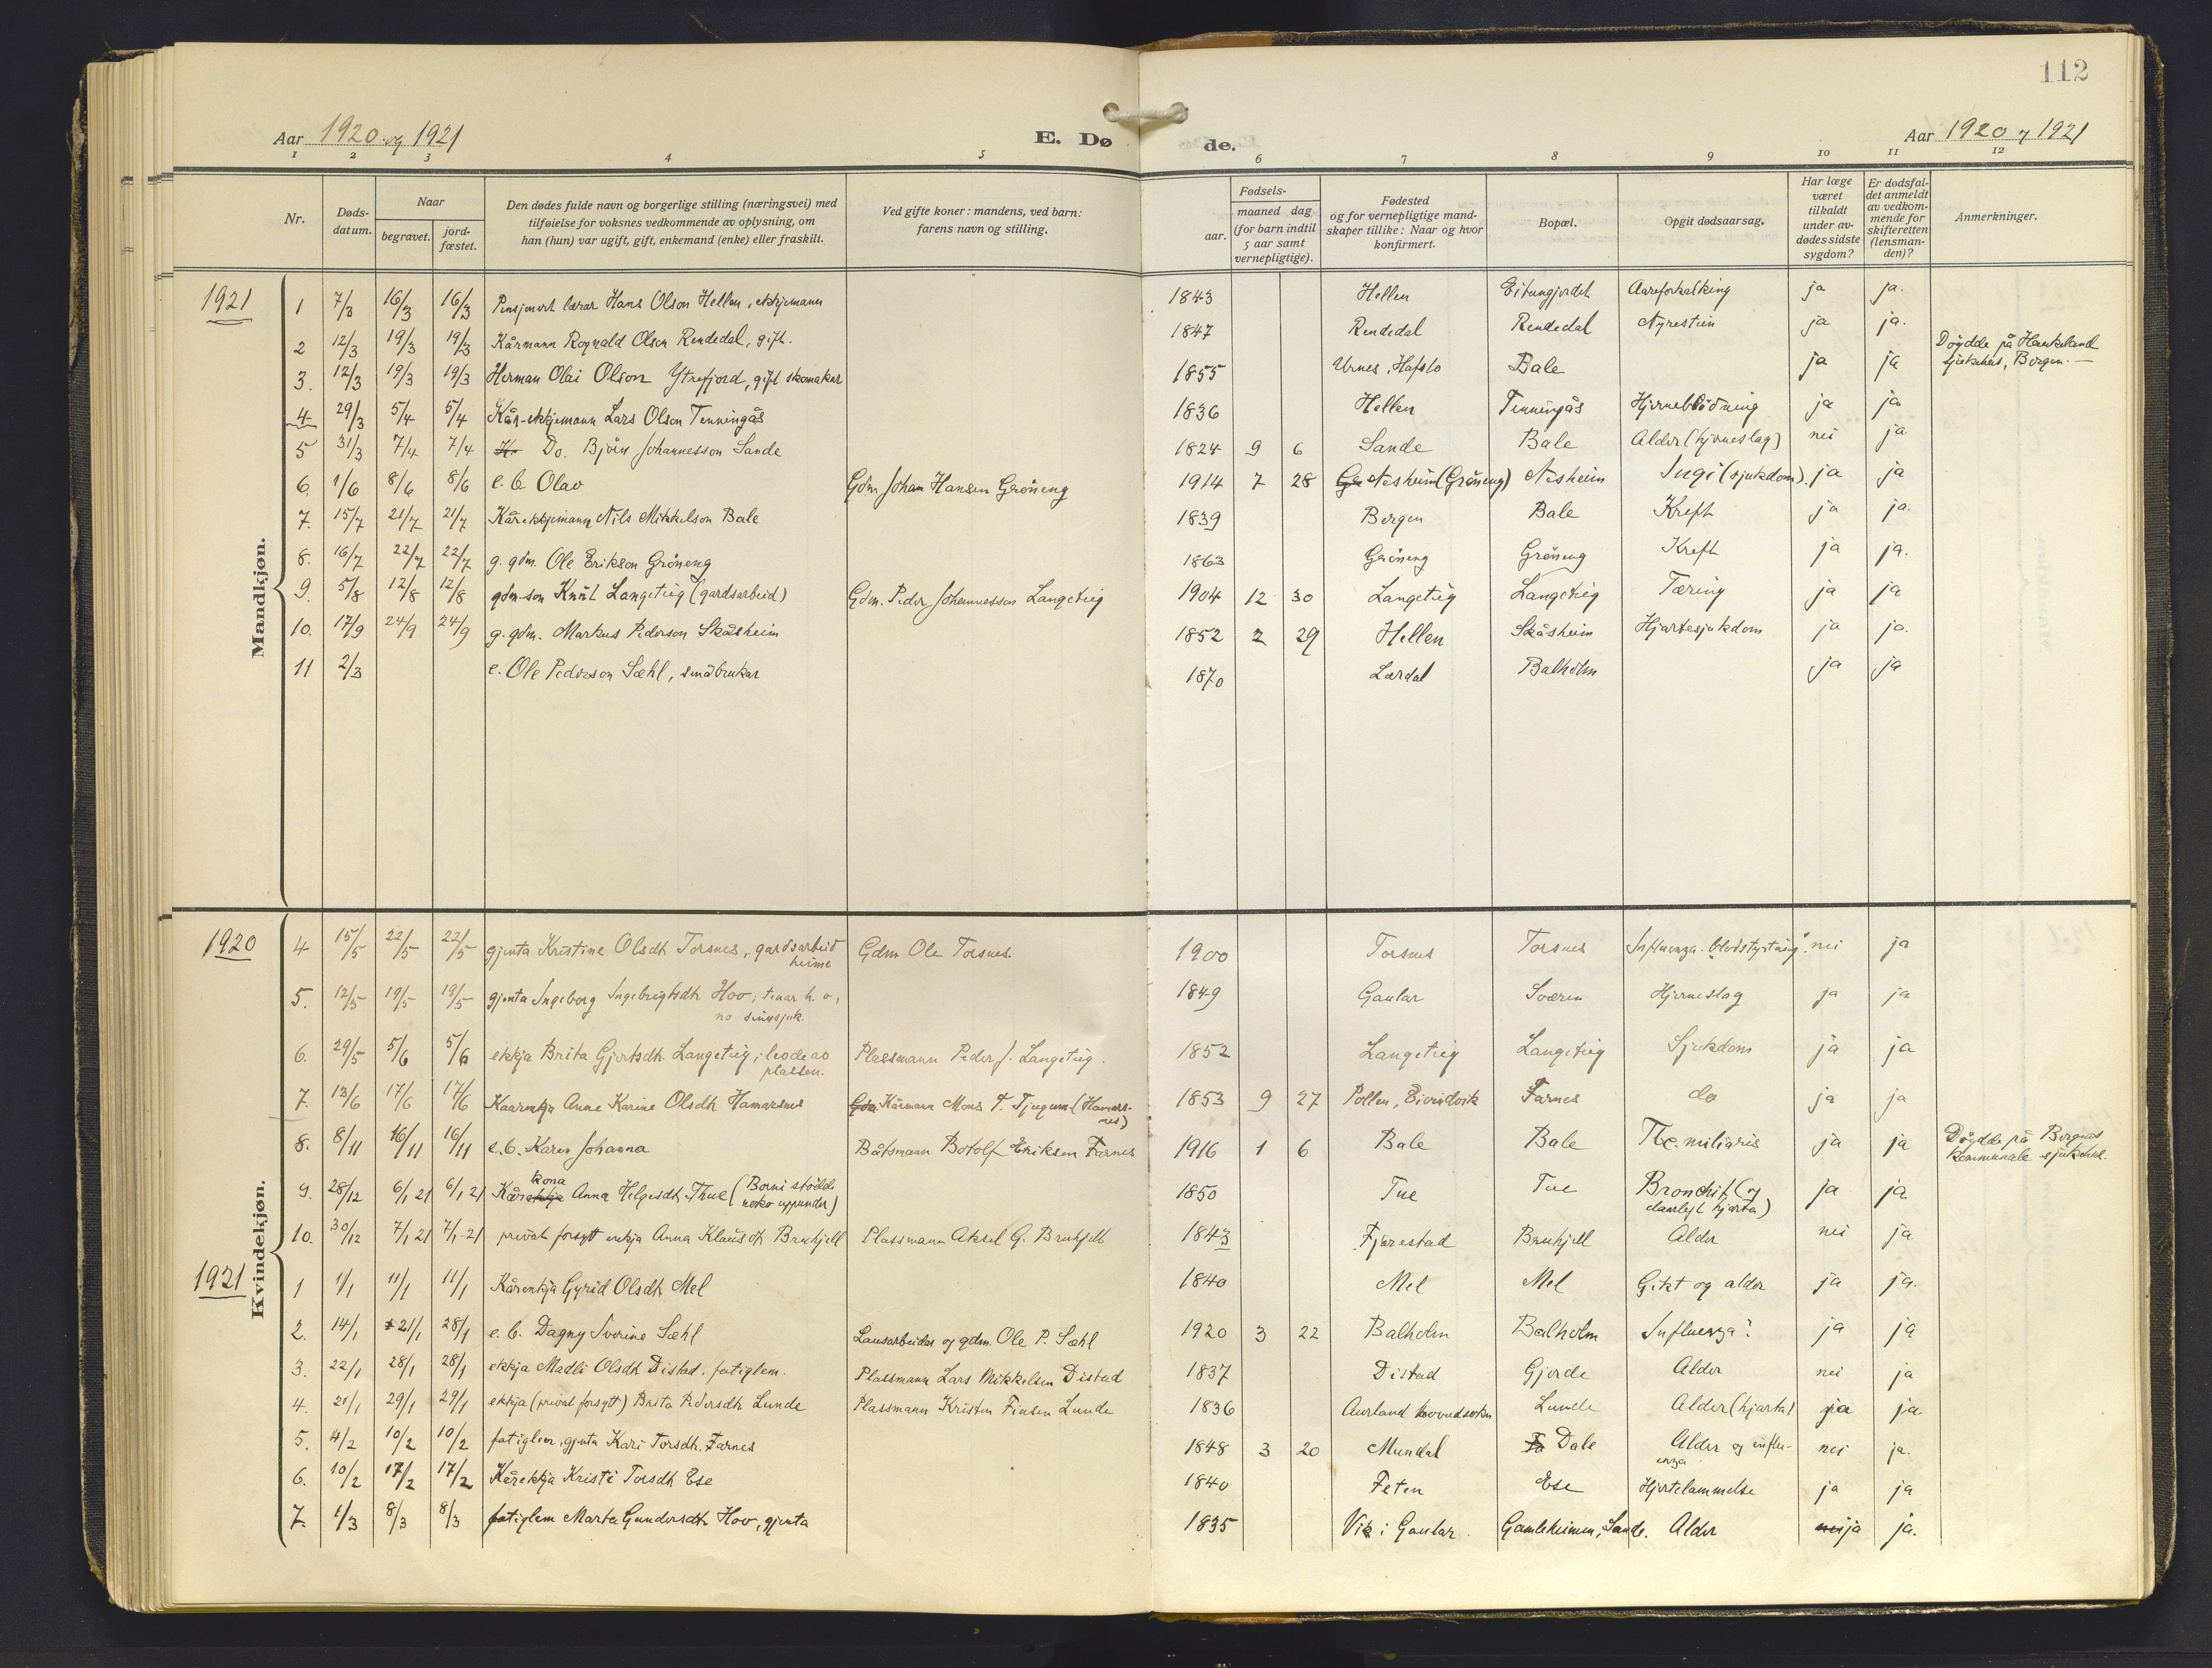 112
Aar 1920 og 1921
E. Dø de.
Aar 1920 og 1921
1 2 3 4 5 6 7 8 9 10 11 12
Nr.
Døds-datum.
Naar
begravet.
jord-fæstet.
Den dødes fulde navn og borgerlige stilling (næringsvei) med
tilføielse for voksnes vedkommende av oplysning, om
han (hun) var ugift, gift, enkemand (enke) eller fraskilt.
Ved gifte koner: mandens, ved barn:
farens navn og stilling.
Fødsels-
aar.
maaned dag
(for barn indtil
5 aar samt
vernepligtige).
Fødested
og for vernepligtige mand-
skaper tillike: Naar og hvor
konfirmert.
Bopæl.
Opgit dødsaarsag.
Har læge
været
tilkaldt
under av-
dødes sidste
sygdom?
Er dødsfal-
det anmeldt
av vedkom-
mende for
skifteretten
(lensman-
den)?
Anmerkninger.
Mandkjøn.
1921
1 7/3 16/3 16/3 Pensjonert lærar Hans Olson Hellen, ekkjemann 1843 Hellen Eitungjordet Aareforkalking ja ja.
2 12/3 19/3 19/3 Kårmann Rognald Olson Rendedal, gift. 1847 Rendedal Rendedal Nyrestein ja ja.
3. 12/3 19/3 19/3 Herman Olai Olson Ytrefjord, gift skomakar 1855 Urnes, Hafslo Bale ja ja Døydde på Haukeland sjukehus, Bergen. —
4 29/3 5/4 5/4 Kår-ekkjemann Lars Olson Tenningås 1836 Hellen Tenningås Hjerneblödning ja ja
5 31/3 7/4 7/4 Do. Björn Johannesson Sande 1824 9 6 Sande Bale Alder (hjerneslag) nei ja
6. 1/6 8/6 8/6 e. b. Olav Gdm Johan Hansen Gröneng 1914 7 28 Nesheim (Gröneng) Nesheim Ingi (sjukdom). ja ja
7. 15/7 21/7 21/7 Kårekkjemann Nils Mikkelson Bale 1839 Bergen Bale Kreft ja ja.
8. 16/7 22/7 22/7 g. gdm. Ole Erikson Gröneng 1863 Gröneng Gröneng Kreft ja ja.
9. 5/8 12/8 12/8 gdm-son Knut Langeteig (gardsarbeid) Gdm. Peder Johannesson Langeteig 1904 12 30 Langeteig Langeteig Tæring ja ja
10. 17/9 24/9 24/9 g. gdm. Markus Pederson Skåsheim 1852 2 29 Hellen Skåsheim Hjartesjukdom ja ja.
11 2/3 e. Ole Pederson Sæhl, småbrukar 1870 Lærdal Balholm ja ja
Kvindekjøn.
1920
4 15/5 22/5 22/5 gjenta Kristine Olsdtr Torsnes, gardsarbeid heime Gdm Ole Torsnes. 1900 Torsnes Torsnes Influenza - "blodstyrtning" nei ja
5. 12/5 19/5 19/5 gjenta Ingeborg Ingebrigtsdtr Hov; tenar h. o, no sinnssjuk. 1849 Gaular Sværen Hjerneslag ja ja
6. 29/5 5/6 5/6 ekkja Brita Gjertsdtr. Langeteig; levde av plassen. Plassmann Peder J. Langeteig. 1852 Langeteig Langeteig Sjukdom ja ja
7. 13/6 17/6 17/6 Kaarenkja Anne Karine Olsdtr Hamarsnes Kårmann Mons T. Tjugum (Hamarsnes) 1853 9 27 Pollen, Eivindvik Farnes do ja ja
8. 8/11 16/11 16/11 e. b. Karen Johanna Båtsmann Botolf Eriksen Farnes 1916 1 6 Bale Bale Tbc. miliaris ja ja Døydde på Bergens kommunale sjukehus.
9. 28/12 6/1 21 6/1 21 Kårekkja kona Anna Helgesdtr. Thue (Borni stödde noko uppunder) 1850 Tue Tue Bronchit (og daarlegt hjarta) ja ja.
10. 30/12 7/1 21 7/1-21 privat forsytt enkja Anna Klausdtr Brukjell Plassmann Aksel G. Brukjell 1843 Fjærestad Brukjell Alder nei ja
1921
1 1/1 11/1 11/1 Kårenkja Gyrid Olsdtr Mel 1840 Mel Mel Gikt og alder ja ja.
2. 14/1 21/1 28/1 e. b. Dagny Sverine Sæhl Lausarbeider og gdm. Ole P. Sæhl 1920 3 22 Balholm Balholm Influenza? ja ja
3. 22/1 28/1 28/1 ekkja Madli Olsdtr Distad. fatiglem. Plassmann Lars Mikkelsen Distad 1837 Distad Gjerde Alder nei ja
4. 21/1 29/1 29/1 ekkja (privat forsytt) Brita Pedersdtr Lunde Plassmann Kristen Finsen Lunde 1836 Aurland hovudsokn Lunde Alder (hjarta) ja ja
5. 4/2 10/2 10/2 fatiglem, gjenta Kari Torsdtr. Farnes 1848 3 20 Mundal Dale Alder og influenza nei ja.
6. 10/2 17/2 17/2 Kårekkja Kristi Torsdtr Ese 1840 Feten Ese Hjertelammelse ja ja
7. 1/3 8/3 8/3 fatiglem Marta Gundersdtr Hov, gjenta 1835 Vik i Gaular. Gamleheimen, Sande. Alder nei ja ja.